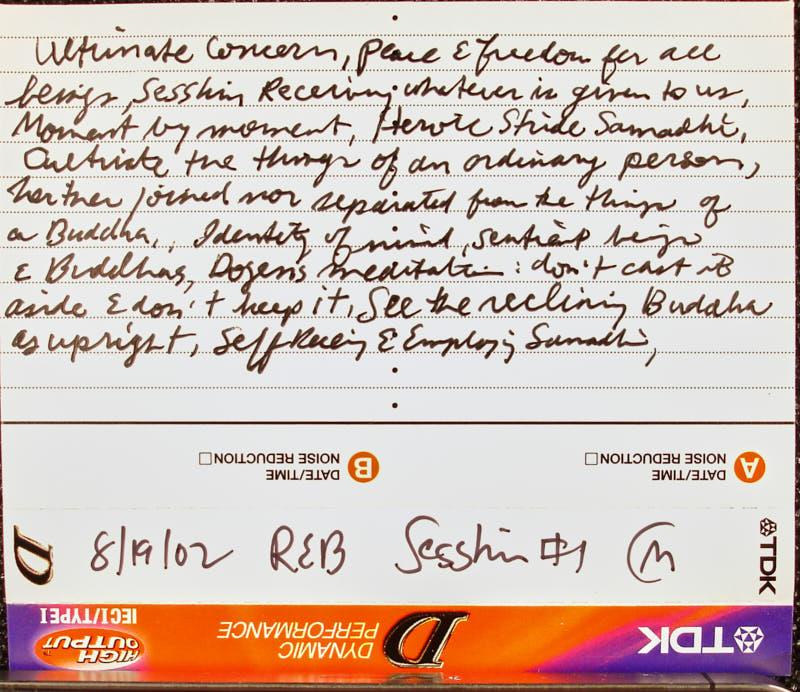 Ultimate Concern, peace & freedom for all
beings, Sesshin Receiving whatever is given to us,
Moment by moment, Heroic Stride Samadhi,
Cultivate the things of an ordinary person,
neither joined nor separated from the things of
a Buddha,, Identity of mind, sentient beings
& Buddhas, Dogen's meditation: don't cast it
aside & don't keep it, See the reclining Buddha
as upright, Self Receiving & Employing Samadhi,
A DATE/TIME
NOISE REDUCTION
B DATE/TIME
NOISE REDUCTION
D 8/19/02 REB Sesshin #1 M TDK
TDK D DYNAMIC PERFORMANCE HIGH OUTPUT IECI/TYPE I